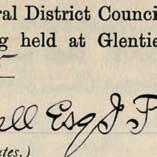 ral District Counci
g held at Glentie
ell Esq J P
ates.)